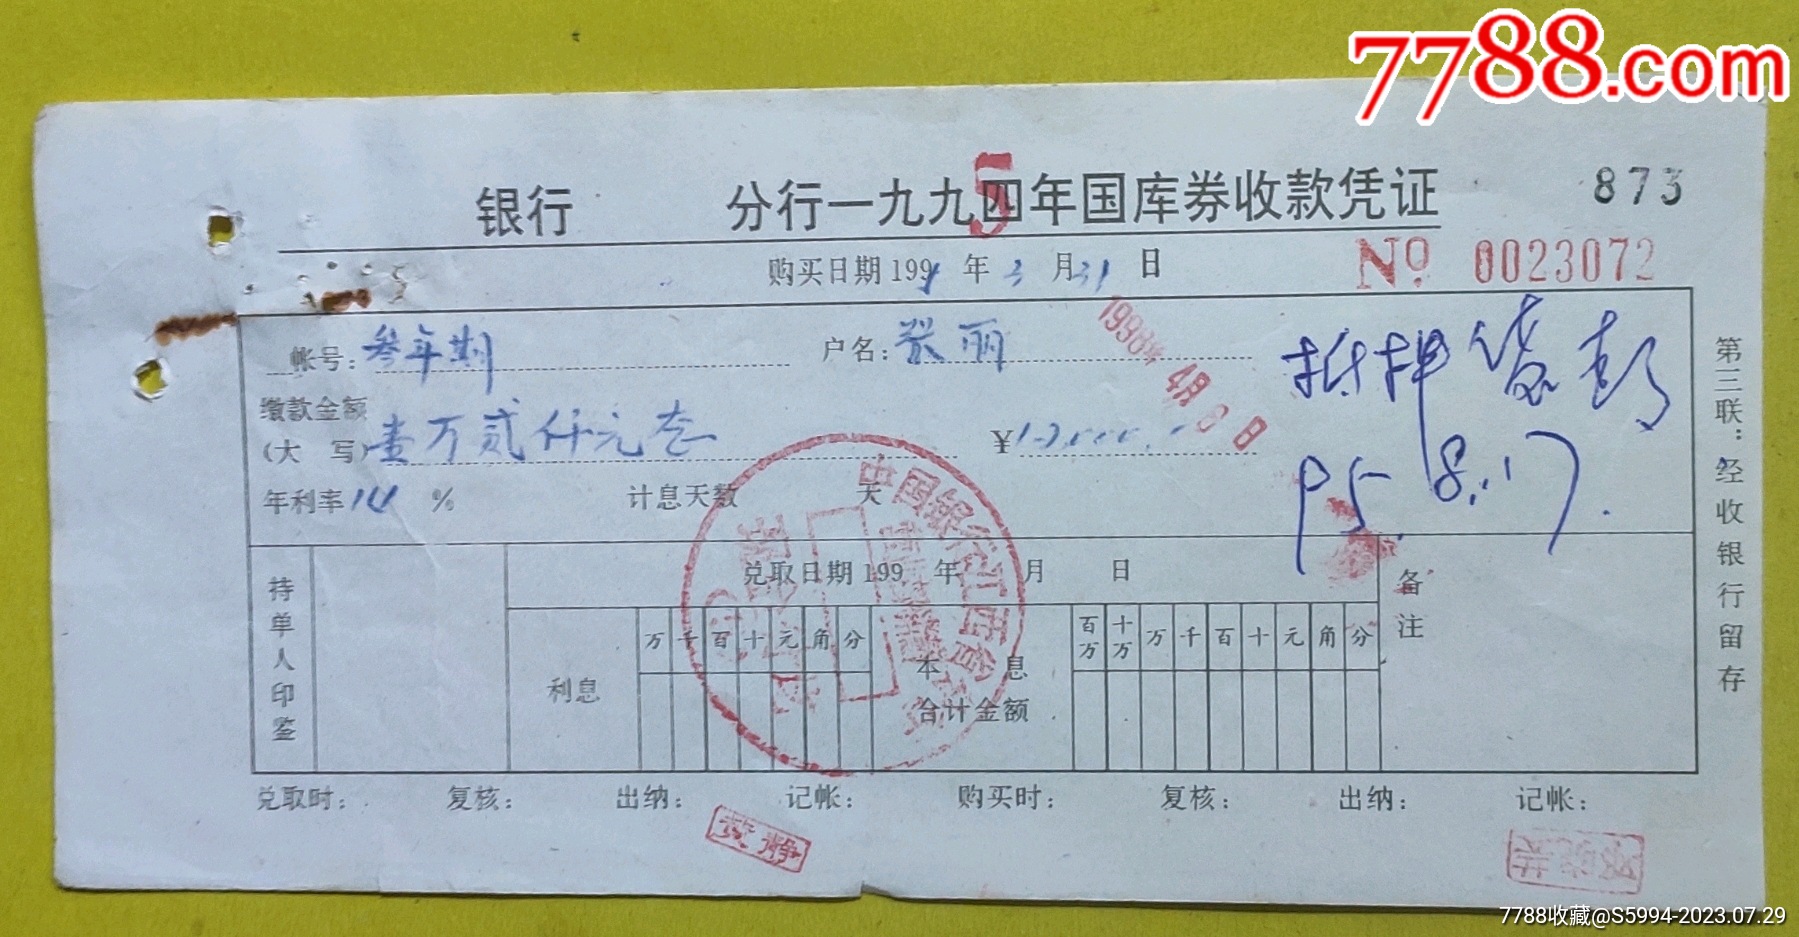 7788.com
银行 分行一九九四年国库券收款凭证 873
5
购买日期199 年3月31日 № 0023072
帐号:叁年期 户名:张丽
1998年4月8日
抵押贷
缴款金额
(大 写)壹万贰仟元叁 ¥12000.-
95.8.17.
年利率14% 计息天数 天
中国银行江西省
兑取日期199 年 月 日
持单人印鉴
利息
万千百十元角分
本息
合计金额
百万 十万 万千百十元角分
备注
第三联:经收银行留存
兑取时: 复核: 出纳: 记帐: 购买时: 复核: 出纳: 记帐:
黄静
7788收藏@S5994-2023.07.29